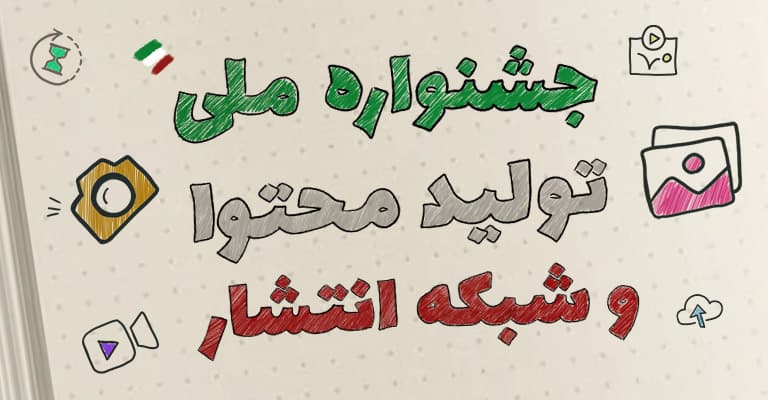 جشنواره ملی
تولید محتوا
و شبکه انتشار